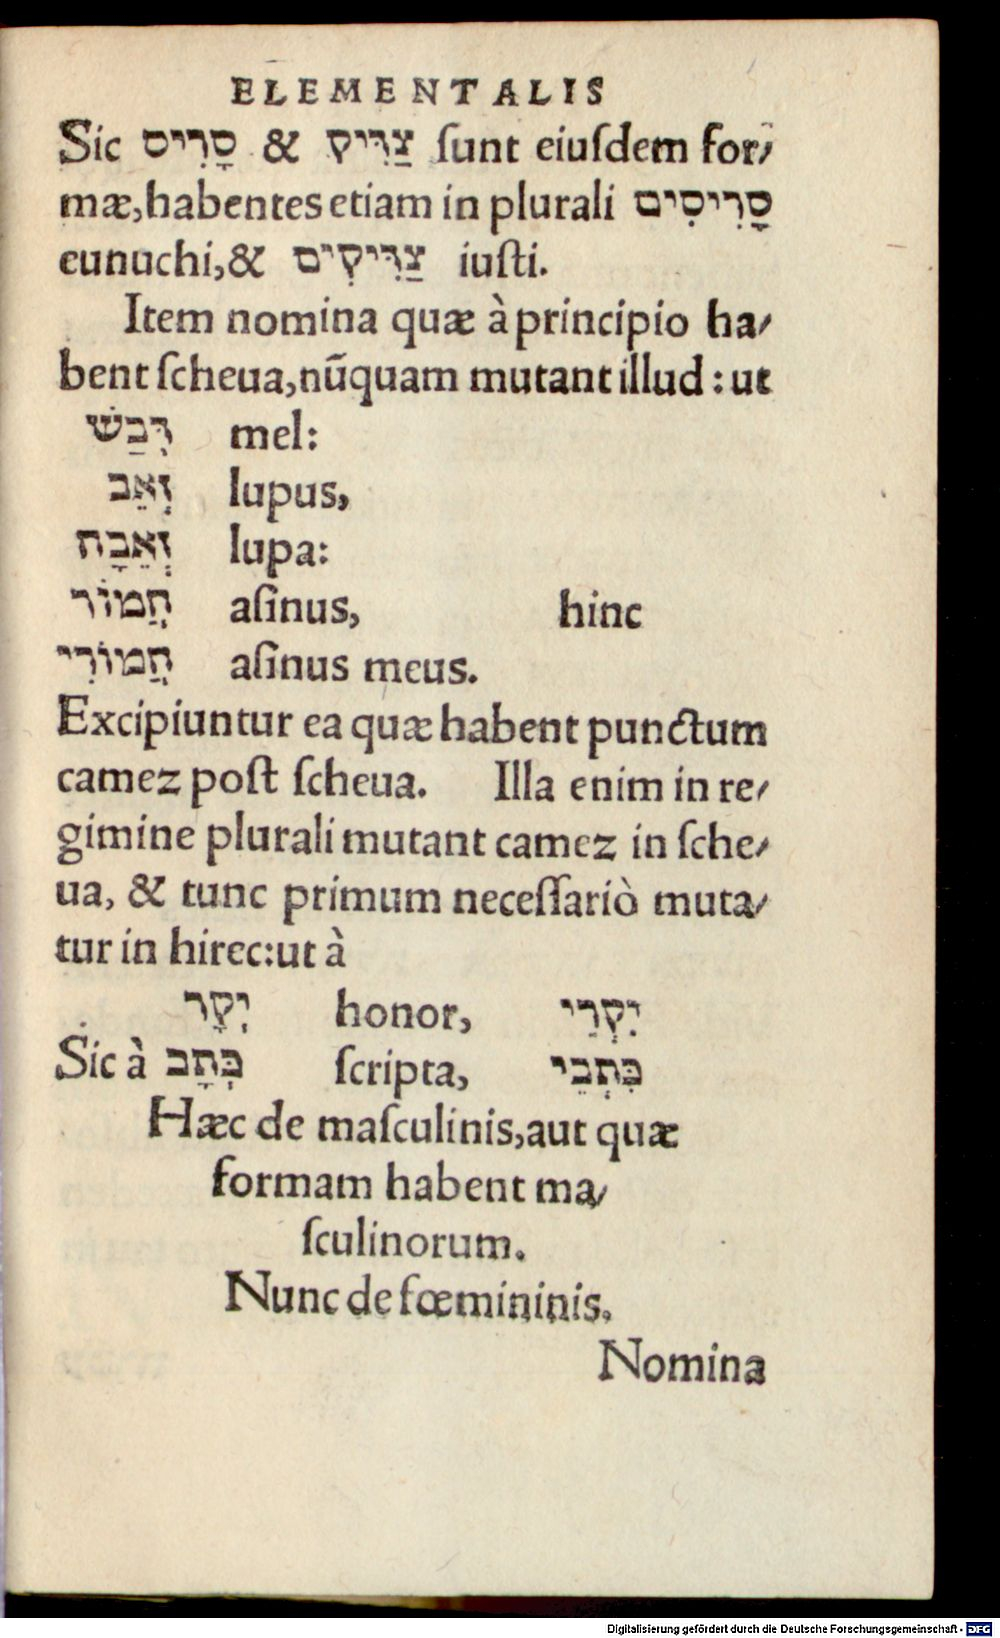 ELEMENTALIS
Sic סָרִיס & צַדִּיק ſunt eiuſdem for⸗
mæ, habentes etiam in plurali סָרִיסִים
eunuchi, & צַדִּיקִים iuſti.
Item nomina quæ à principio ha⸗
bent ſcheua, nũquam mutant illud : ut
דְּבַשׁ mel:
זְאֵב lupus,
זְאֵבָה lupa:
חֲמוֹר aſinus, hinc
חֲמוֹרִי aſinus meus.
Excipiuntur ea quæ habent punctum
camez poſt ſcheua. Illa enim in re⸗
gimine plurali mutant camez in ſche⸗
ua, & tunc primum neceſſariò muta⸗
tur in hirec: ut à
יְקָר honor, יִקְרֵי
Sic à כְּתָב ſcripta, כִּתְבֵי
Hæc de maſculinis, aut quæ
formam habent ma⸗
ſculinorum.
Nunc de fœmininis.
Nomina
Digitalisierung gefördert durch die Deutsche Forschungsgemeinschaft - DFG